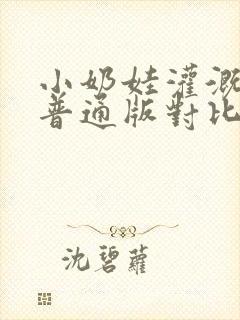 小奶娃灌溉
普通版對比
沈碧蘿